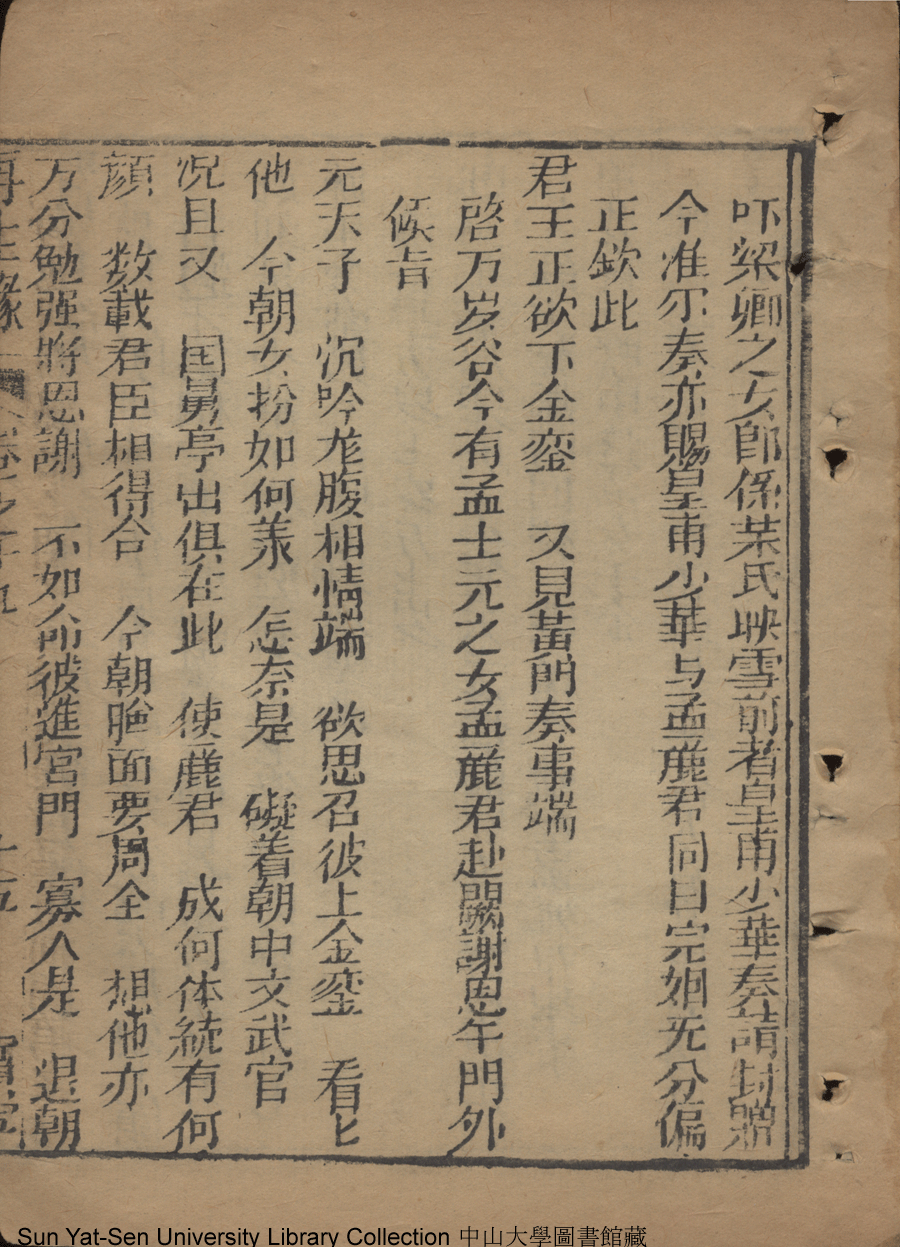 吓梁卿之女郎係荣氏映雪前者皇甫少華奏請封贈
今准尔奏亦賜皇甫少華与孟麗君同日完姻无分偏
正欽此
君王正欲下金鑾　又見黃門奏事端
啓万岁谷今有孟士元之女孟麗君赴闕謝恩午門外
候旨
元天子　沉吟龙腹相情端　欲思召彼上金鑾　看匕
他　今朝女扮如何羕　怎奈是　礙着朝中文武官
况且又　国舅亭出俱在此　使麗君　成何体統有何
顔　数載君臣相得合　今朝臉面要周全　想他亦
万分勉强將恩謝　不如命彼進宮門　寡人是　退朝
再生緣　卷之十九
Sun Yat-Sen University Library Collection 中山大學圖書館藏